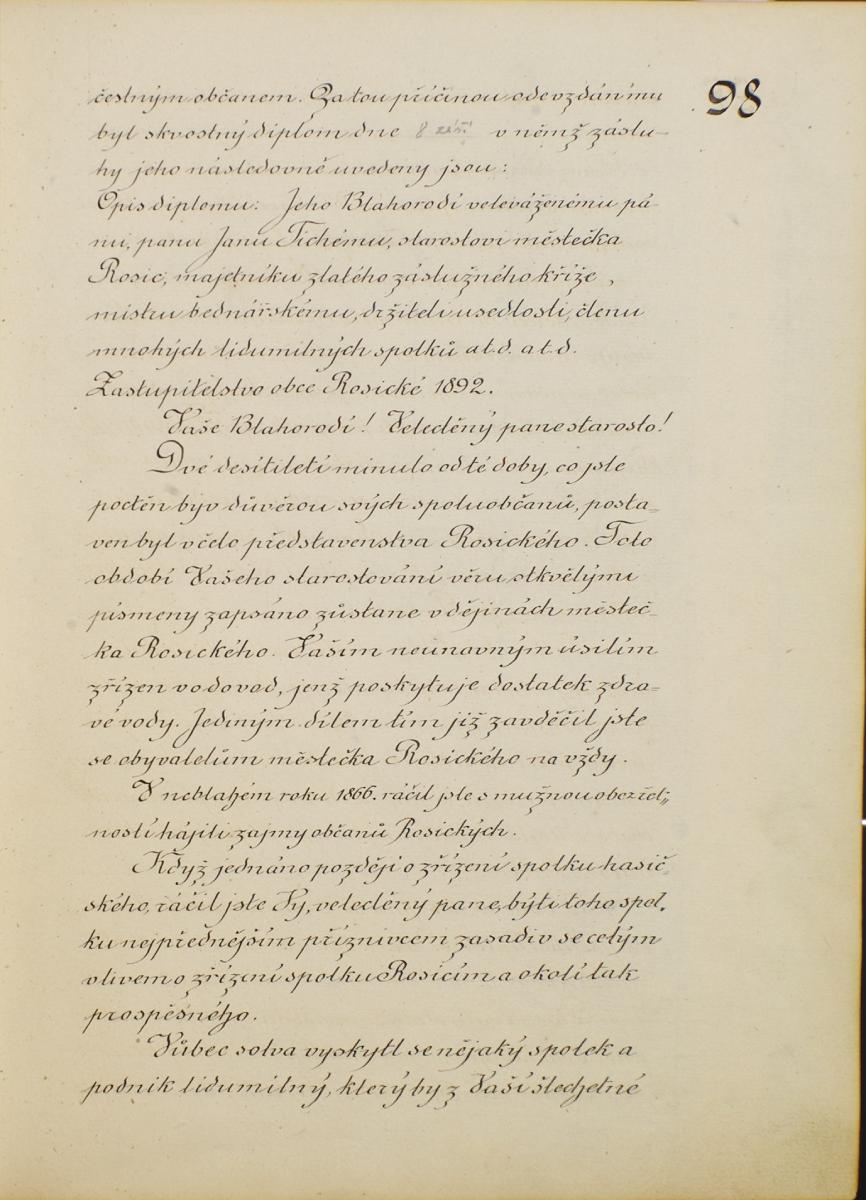 98
čestným občanem. Za tou příčinou odevzdán mu
byl skvostný diplom dne 8 září v němž záslu-
hy jeho následovně uvedeny jsou:
Opis diplomu: Jeho Blahorodí veleváženému pá-
nu, panu Janu Tichému, starostovi městečka
Rosic, majetníku zlatého záslužného kříže,
mistru bednářskému, držiteli usedlosti, členu
mnohých lidumilných spolků a t. d. a t. d.
Zastupitelstvo obce Rosické 1892.
Vaše Blahorodí! Velectěný pane starosto!
Dvě desítiletí minulo od té doby, co jste
poctěn byv důvěrou svých spoluobčanů, posta-
ven byl v čelo představenstva Rosického. Toto
období Vašeho starostování věru stkvělými
písmeny zapsáno zůstane v dějinách městeč-
ka Rosického. Vaším neúnavným úsilím
zřízen vodovod, jenž poskytuje dostatek zdra-
vé vody. Jediným dílem tím již zavděčil jste
se obyvatelům městečka Rosického na vždy.
V neblahém roku 1866. ráčil jste s mužnou obezřet-
ností hájiti zájmy občanů Rosických.
Když jednáno později o zřízení spolku hasič-
ského, ráčil jste Vy, velectěný pane, býti toho spol-
ku nejpřednějším příznivcem zasadiv se celým
vlivem o zřízení spolku Rosicím a okolí tak
prospěšného.
Vůbec sotva vyskytl se nějaký spolek a
podnik lidumilný, který by z Vaší šlechetné